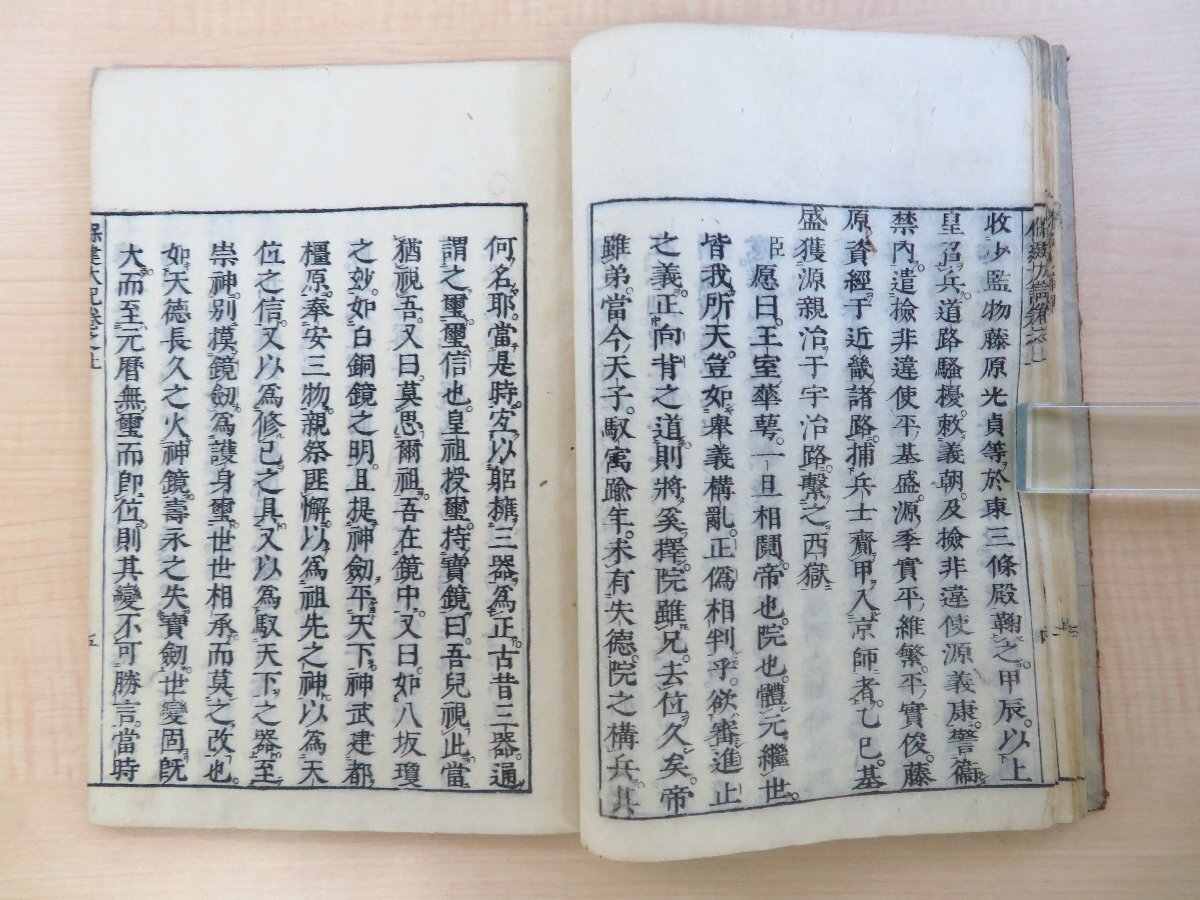 收少監物藤原光貞等於東三條殿鞫之。甲辰。以上
皇召兵。道路騷擾。敕義朝。及撿非違使源義康。警衞
禁內。遣撿非違使平基盛。源季實平維繁。平實俊。藤
原資經于近畿諸路。捕兵士齎甲入京師者。乙巳。基
盛獲源親治于宇治路。繫之西獄
臣愿曰。王室華萼。一旦相鬩。帝也。院也。體元繼世。
皆我所天。豈如舉義構亂。正僞相判乎。欲審進止
之義。正向背之道。則將奚擇。院雖兄。去位久矣。帝
雖弟。當今天子。馭寓踰年。未有失德。院之構兵。其
何名耶。當是時。宜以躬擁三器爲正。古昔三器。通
謂之璽。璽信也。皇祖授璽。持寶鏡曰。吾兒視此當
猶視吾。又曰。莫思爾祖。吾在鏡中。又曰。如八坂瓊
之妙。如白銅鏡之明。且提神劒。平天下。神武建都
橿原。奉安三物。親祭匪懈。以爲祖先之神。以爲天
位之信。又以爲修己之具。又以爲馭天下之器。至
崇神。別摸鏡劒。爲護身璽。世世相承。而莫之改也。
如天德長久之火神鏡。壽永之失寶劒。世變固旣
大。而至元曆無璽而卽位。則其變不可勝言。當時
保建大記卷之上
五